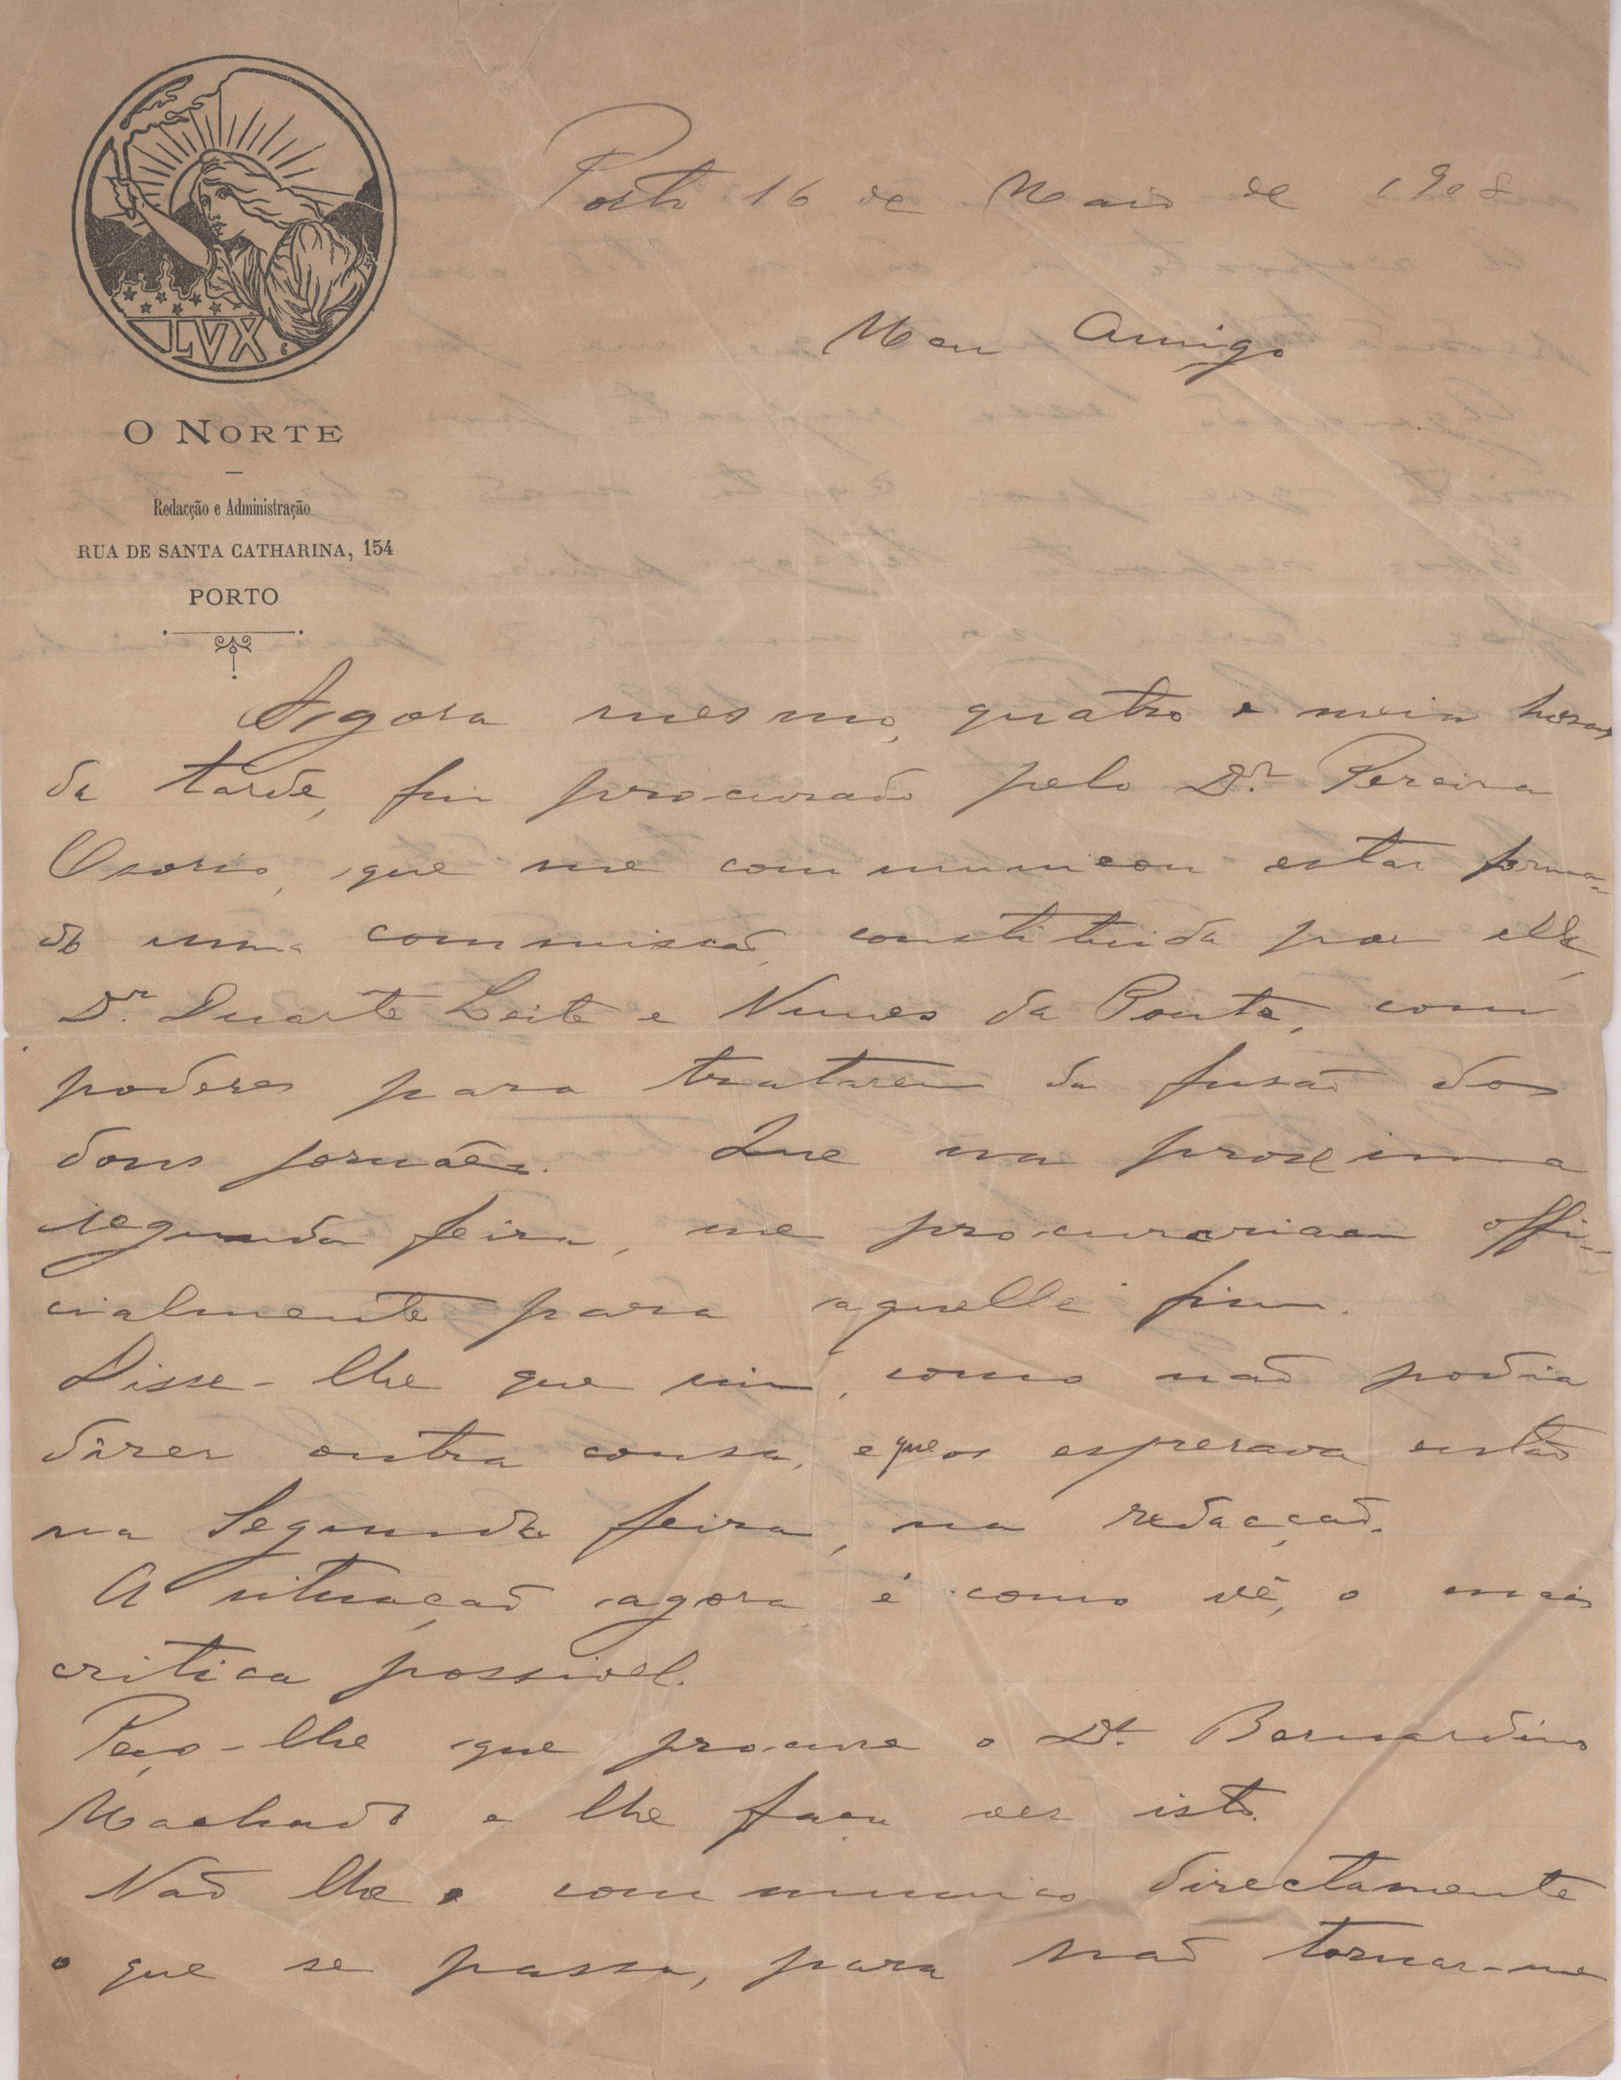 LVX
O NORTE
Redacção e Administração
RUA DE SANTA CATHARINA, 154
PORTO
Porto 16 de Maio de 1908
Meu Amigo
Agora mesmo, quatro e meia horas
da tarde, fui procurado pelo Dr. Pereira
Osorio, que me communicou estar forma-
do uma commissão, constituida por elle,
Dr. Duarte Leite e Nunes da Ponte, com
poderes para tratarem da fusão dos
dous jornáes. Que na proxima
segunda feira, me procurariam offi-
cialmente para aquelle fim.
Disse-lhe que sim, como não podia
dizer outra cousa, e que os esperava então
na Segunda feira, na redacção.
A situação agora é como vê, o mais
critica possivel.
Peço-lhe que procure o Dr. Bernardino
Machado e lhe faça ver isto.
Não lhe communico directamente
o que se passa, para não tornar-me